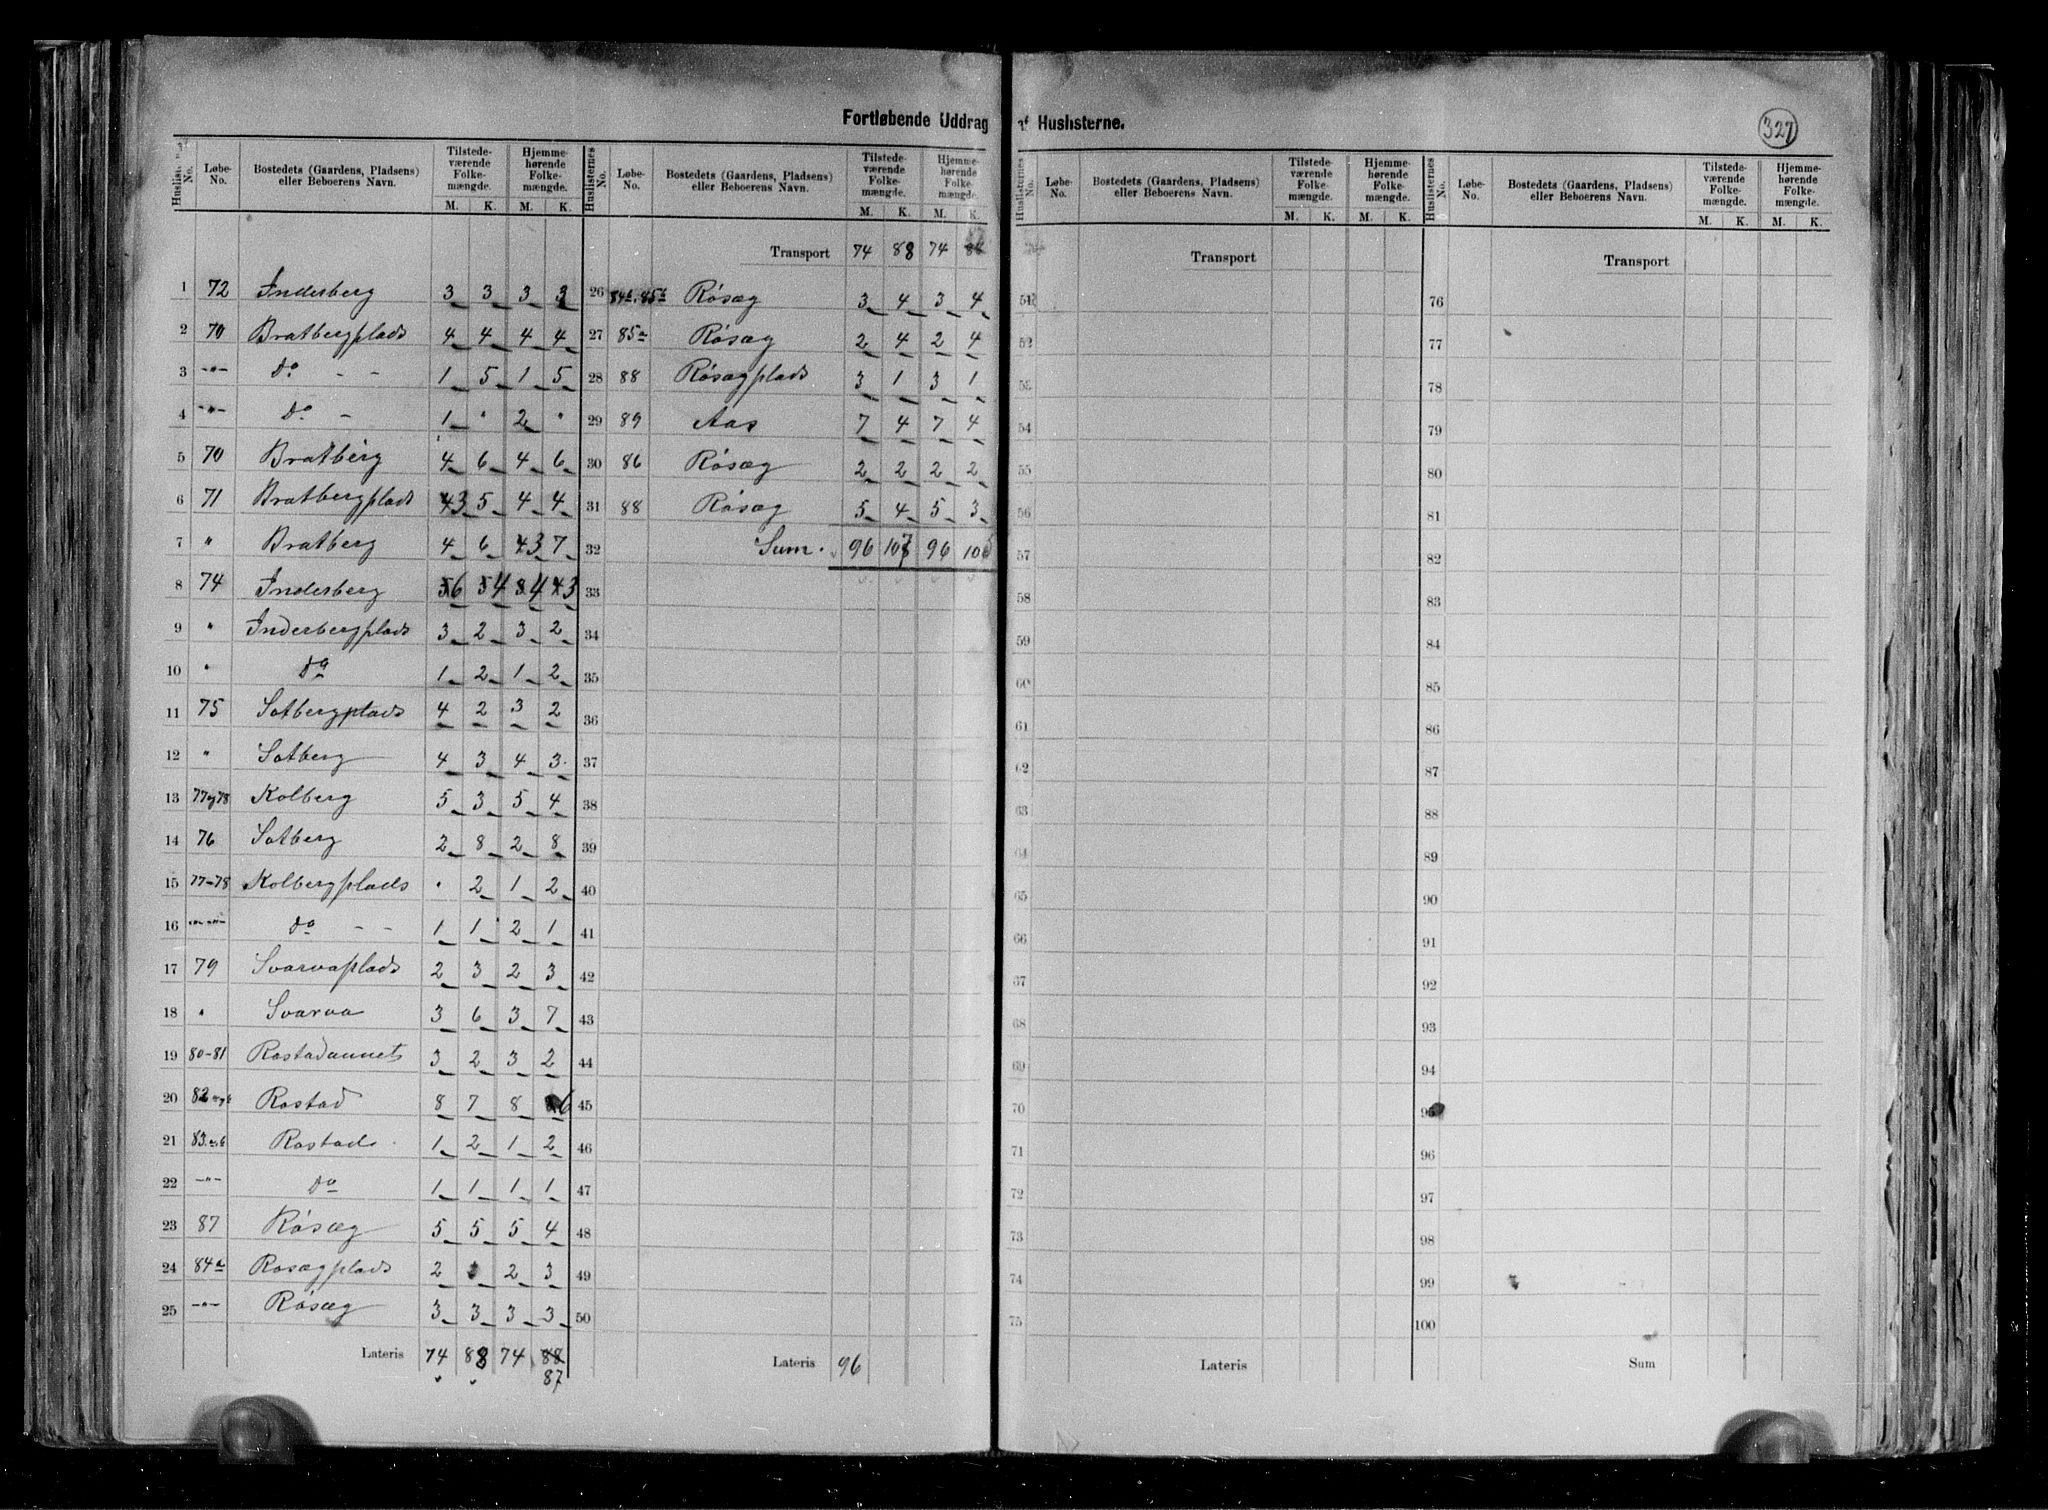 Fortløbende Uddrag af Huslisterne.
327
Huslisternes No. Løbe-No. Bostedets (Gaardens, Pladsen) eller Beboerens Navn. Tilstedeværende Folkemængde. M. K. Hjemmehørende Folkemængde. M. K.
1 72 Inderberg 3 3 3 3
2 70 Bratbergplads 4 4 4 4
3 -"- do - - 1 5 1 5
4 -"- do - 1 " 2 "
5 70 Bratberg 4 6 4 6
6 71 Bratbergplads 3 5 4 4
7 " Bratberg 4 6 3 7
8 74 Inderberg 6 4 4 3
9 " Inderbergplads 3 2 3 2
10 " do 1 2 1 2
11 75 Sotbergplads 4 2 3 2
12 " Sotberg 4 3 4 3
13 77 og 78 Kolberg 5 3 5 4
14 76 Sotberg 2 8 2 8
15 77-78 Kolbergplads " 2 1 2
16 -"- -"- do - - 1 1 2 1
17 79 Svarvaplads 2 3 2 3
18 " Svarva 3 6 3 7
19 80-81 Rostadaunet 3 2 3 2
20 82 Rostad 8 7 8 6
21 83 Rostad 1 2 1 2
22 -"- do 1 1 1 1
23 87 Røsæg 5 5 5 4
24 84a Rosægplads 2 2 3
25 -"- Røsæg 3 3 3 3
Lateris 74 88 74 88
87
Huslisternes No. Løbe-No. Bostedets (Gaardens, Pladsen) eller Beboerens Navn. Tilstedeværende Folkemængde. M. K. Hjemmehørende Folkemængde. M. K.
Transport 74 88 74
26 84b, 85b Røsæg 3 4 3 4
27 85a Røsæg 2 4 2 4
28 88 Røsægplads 3 1 3 1
29 89 Aas 7 4 7 4
30 86 Røsæg 2 2 2 2
31 88 Røsæg 5 4 5 3
32 Sum. 96 107 96 105
33
34
35
36
37
38
39
40
41
42
43
44
45
46
47
48
49
50
Lateris 96
Huslisternes No. Løbe-No. Bostedets (Gaardens, Pladsen) eller Beboerens Navn. Tilstedeværende Folkemængde. M. K. Hjemmehørende Folkemængde. M. K.
Transport
51
52
53
54
55
56
57
58
59
60
61
62
63
64
65
66
67
68
69
70
71
72
73
74
75
Lateris
Huslisternes No. Løbe-No. Bostedets (Gaardens, Pladsen) eller Beboerens Navn. Tilstedeværende Folkemængde. M. K. Hjemmehørende Folkemængde. M. K.
Transport
76
77
78
79
80
81
82
83
84
85
86
87
88
89
90
91
92
93
94
95
96
97
98
99
100
Sum